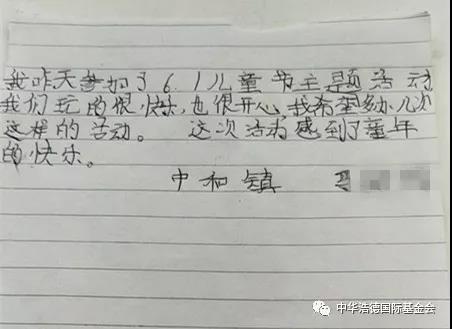 我昨天参加了6.1儿童节主题活动
我们玩的很快乐,也很开心我希望多办几次
这样的活动。 这次活动感到了童年
的快乐。
中和镇
中华浩德国际基金会